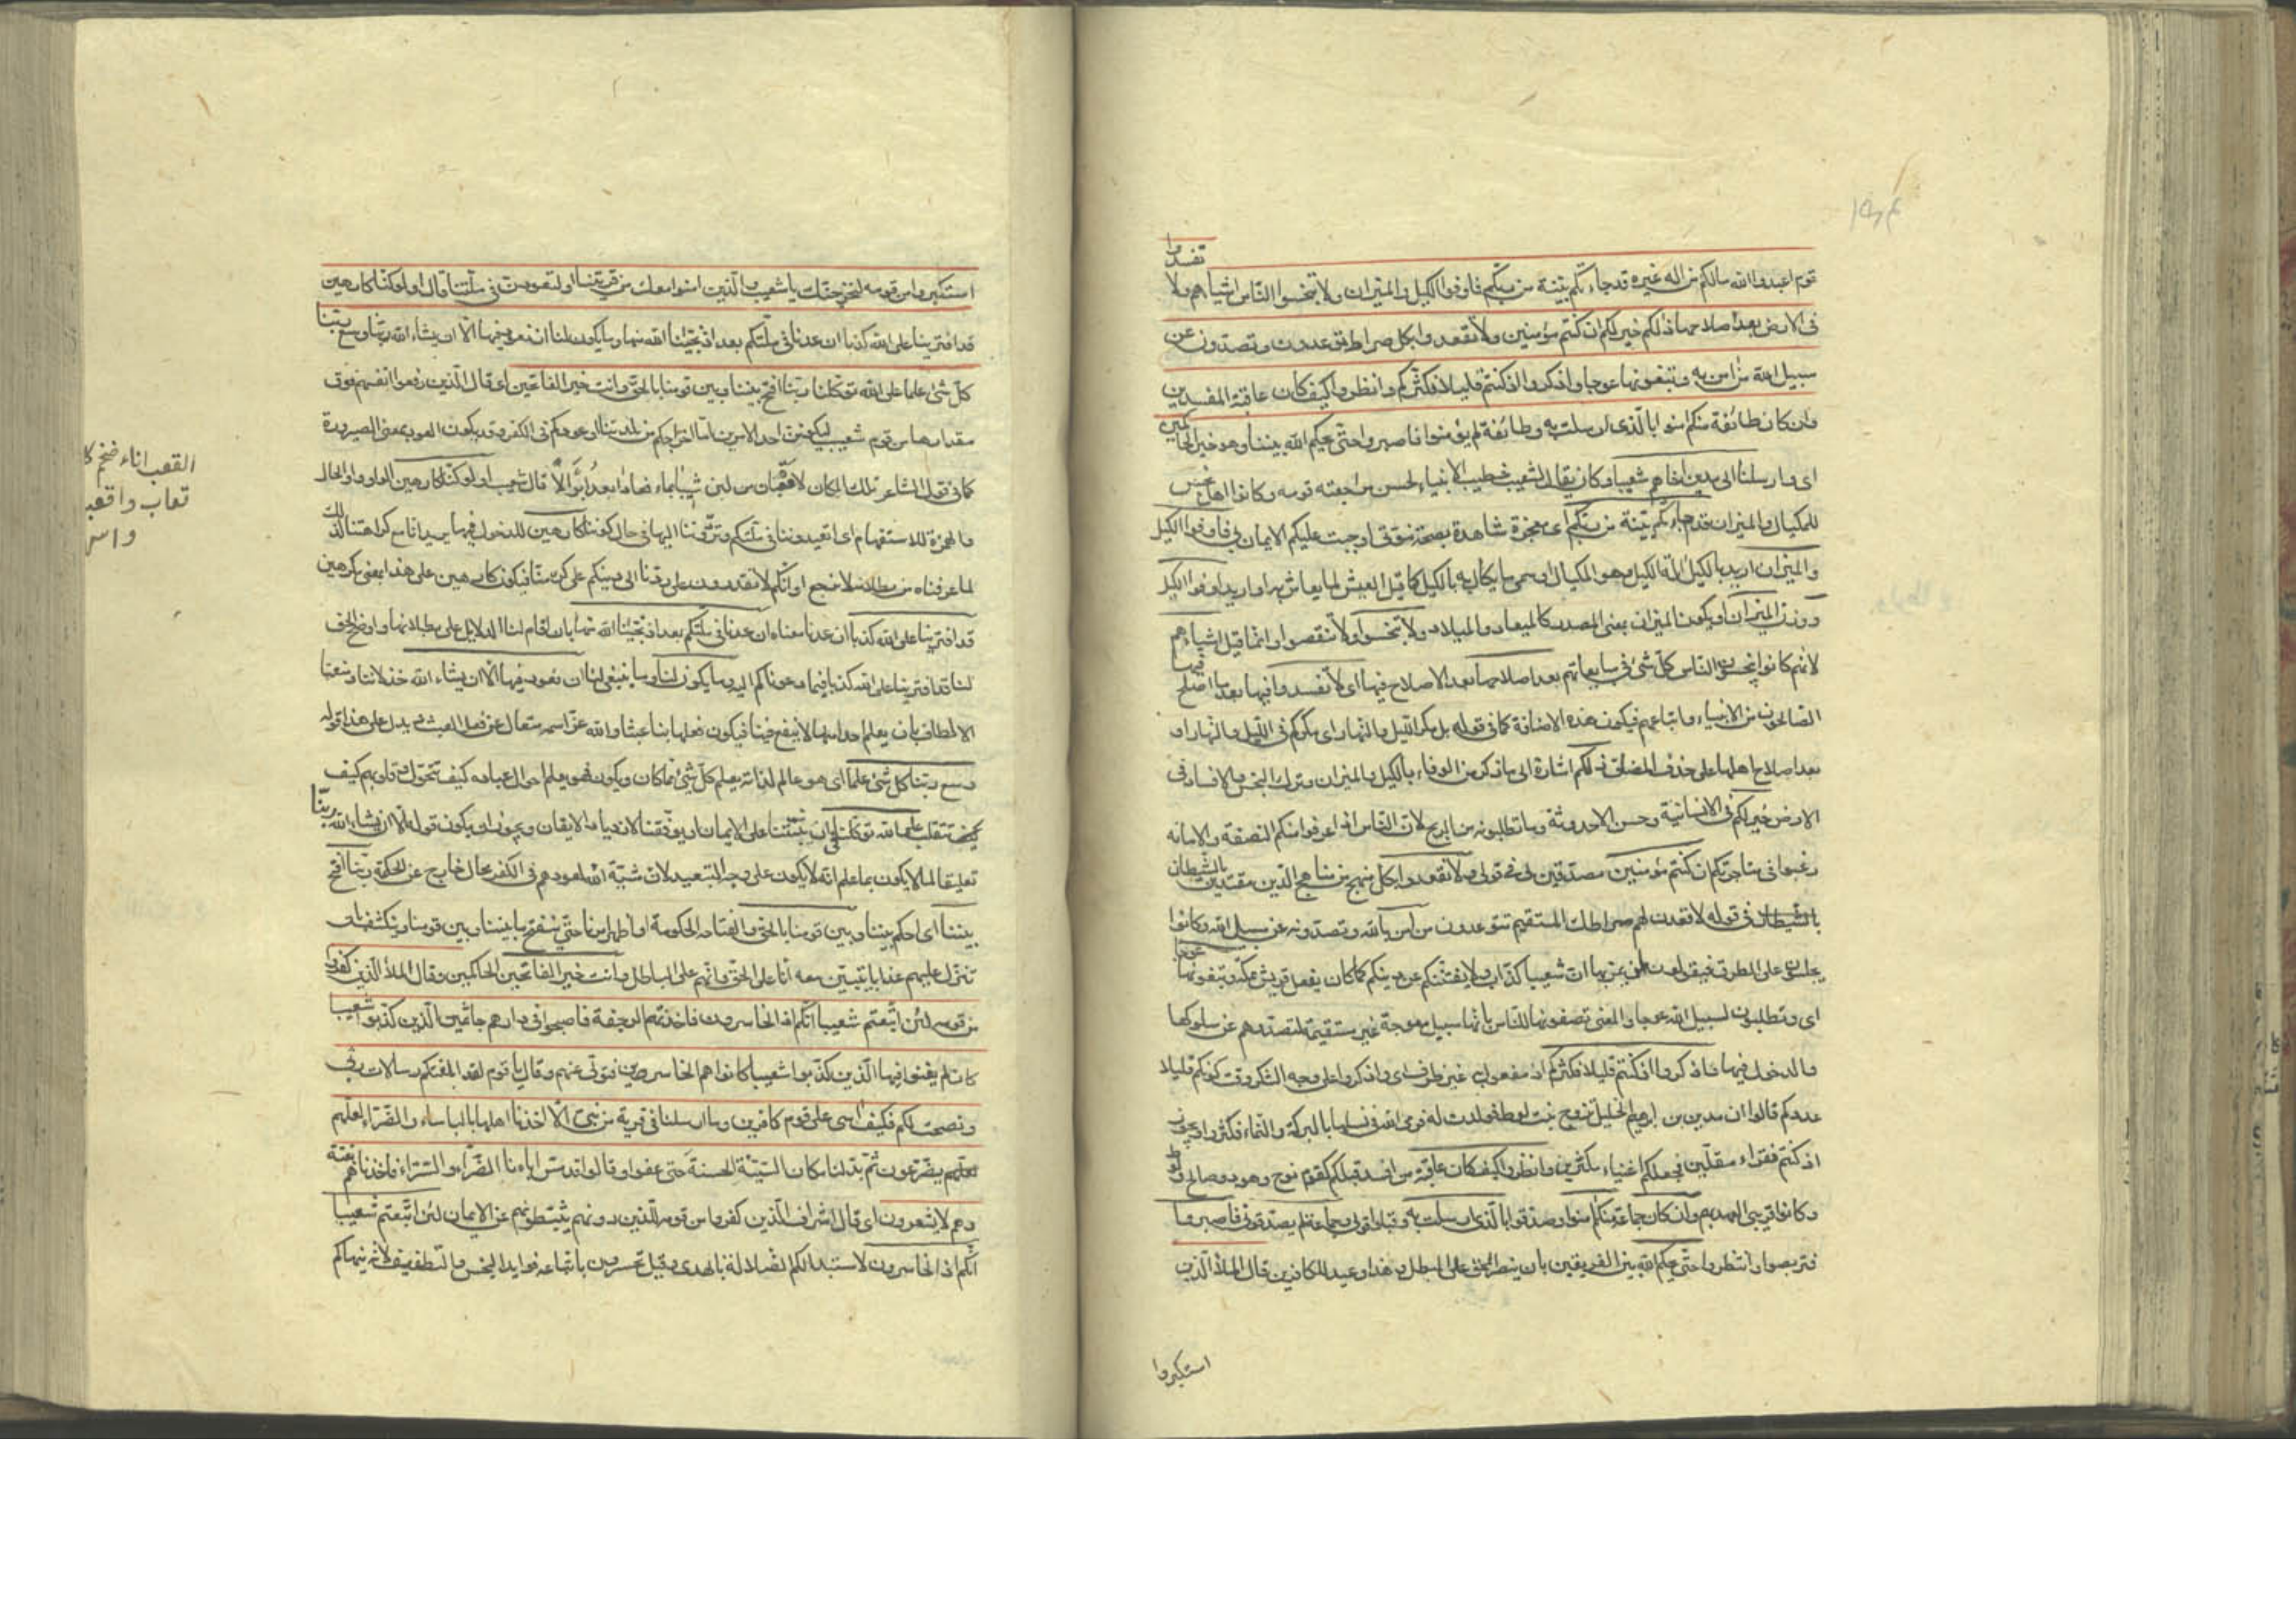 تفسدوا
قوم اعبدوا الله مالكم من اله غيره قد جاءتكم بيّنة من ربّكم فاوفوا الكيل والميزان ولا تبخسوا النّاس اشياءهم ولا
فى الارض بعد اصلاحها ذٰلكم خير لكم ان كنتم مؤمنين ولا تقعدوا بكل صراط توعدون وتصدّون عن
سبيل الله من امن به وتبغونها عوجا واذكروا اذ كنتم قليلا فكثّركم وانظروا كيف كان عاقبة المفسدين
وان كان طائفة منكم امنوا بالّذى ارسلت به وطائفة لم يؤمنوا فاصبروا حتّى يحكم الله بيننا وهو خير الحاكمين
اى وارسلنا الى مدين اخاهم شعيبا وكان يقال لشعيب خطيب الانبياء لحسن مراجعته قومه وكانوا اهل بخس
للمكيال والميزان قد جاءتكم بيّنة من ربّكم اى معجزة شاهدة بصحّة نبوّتى اوجبت عليكم الايمان بى فاوفوا الكيل
والميزان اريد بالكيل الة الكيل وهو المكيال او سمى ما يكال به بالكيل كما قيل العيش لما يعاش به او اريد اوفوا الكيل
ووزن الميزان او يكون الميزان بمعنى المصدر كالميعاد والميلاد ولا تبخسوا ولا تنقصوا وانّما قيل اشياءهم
لانّهم كانوا يبخسون الناس كلّ شئ فى مبايعاتهم بعد اصلاحها بعد الاصلاح فيها اى لا تفسدوا فيها بعد ما اصلح فيها
الصّالحون من الانبياء واتباعهم فيكون هذه الاضافة كما فى قوله بل مكر اللّيل والنّهار اى مكركم فى اللّيل والنّهار او
بعد اصلاح اهلها على حذف المضاف ذلكم اشارة الى ما ذكر من الوفاء بالكيل والميزان وترك البخس والافساد فى
الارض خير لكم فى الانسانيّة وحسن الاحدوثة وما تطلبونه من الربح لانّ النّاس اذا عرفوا منكم النصفة والامانة
رغبوا فى متاجرتكم ان كنتم مؤمنين مصدّقين لى فى قولى ولا تقعدوا بكلّ منهج من مناهج الدّين مقتدين بالشيطان
بالشيطان فى قوله لاقعدنّ لهم صراطك المستقيم توعدون من امن بالله وتصدّونه عن سبيل الله وكانوا
يجلسون على الطرق فيقولون لمن يمرّ بها انّ شعيبا كذّاب ولا يفتننّكم عن دينكم كما كان يفعل قريش بمكّة وتبغونها عوجا
اى وتطلبون لسبيل الله عوجا والمعنى تصفونها للنّاس بانّها سبيل معوجة غير مستقيمة لتصدّوهم عن سلوكها
والدخول فيها واذكروا اذ كنتم قليلا فكثّركم اذ مفعول به غير ظرف اى واذكروا على وجه الشكر وقت كونكم قليلا
عددكم قالوا ان مدين بن ابرهيم الخليل تزوج بنت لوط فولدت له فرمى الله فى نسلها بالبركة والنّماء فكثروا ويجوز
اذ كنتم فقراء مقلّين فجعلكم اغنياء مكثرين وانظروا كيف كان عاقبة من افسد قبلكم كقوم نوح وهود وصالح ولوط
وكانوا قريبى العهد بهم وان كان جماعة منكم امنوا وصدّقوا بالّذى ارسلت به وقبلوا قولى وجماعة لم يصدّقونى فاصبروا
فتربصوا وانتظروا حتّى يحكم الله بين الفريقين بان ينصر المحق على المبطل وهذا وعيد للكافرين قال الملأ الّذين
استكبروا
استكبروا من قومه لنخرجنّك يا شعيب والّذين امنوا معك من قريتنا او لتعودنّ فى ملّتنا قال اولو كنّا كارهين
قد افترينا على الله كذبا ان عدنا فى ملّتكم بعد اذ نجّينا الله منها وما يكون لنا ان نعود فيها الّا ان يشاء الله ربّنا وسع ربّنا
كلّ شئ علما على الله توكّلنا ربّنا افتح بيننا وبين قومنا بالحقّ وانت خير الفاتحين اى قال الّذين رفعوا انفسهم فوق
مقدارها من قوم شعيب ليكوننّ احد الامرين امّا اخراجكم من بلدتنا او عودكم فى الكفر وقد يكون العود بمعنى الصيرورة
كما فى قول الشاعر تلك المكارم لا قعبان من لبن شيبا بماء فعادا بعد ابوالا قال شعيب اولو كنّا كارهين الواو واو الحال
والهمزة للاستفهام اى اتعيدوننا فى ملّتكم وتردّوننا اليها فى حال كوننا كارهين للدخول فيها يريد انّا مع كراهتنا لذلك
لما عرفناه من بطلانه لا نرجع او انّكم لا تقدرون على ردّنا الى دينكم على كره منّا فيكون كارهين على هذا بمعنى مكرهين
قد افترينا على الله كذبا ان عدنا معناه ان عدنا فى ملّتكم بعد اذ نجّينا الله منها بان اقام لنا الدلايل على بطلانها واوضح الحق
لنا فقد افترينا على الله كذبا فيما دعوناكم اليه وما يكون لنا وما ينبغى لنا ان نعود فيها الّا ان يشاء الله خذلاننا ومنعنا
الالطاف بان يعلم الله انها لا تنفع فينا فيكون فعلها بنا عبثا والله عزّ اسمه متعال عن فعل العبث ويدل على هذا قوله
وسع ربّنا كلّ شئ علما اى هو عالم لذاته يعلم كلّ شئ ممّا كان ويكون فهو يعلم احوال عباده كيف تتحوّل وقلوبهم كيف
تتقلب على الله توكّلنا فى ان يثبّتنا على الايمان ويوفّقنا لازدياد الايقان ويجوز ان يكون قوله الّا ان يشاء الله ربّنا
تعليقا لما لا يكون بما علم انّه لا يكون على وجه التبعيد لان مشيّة الله لعودهم فى الكفر محال خارج عن الحكمة ربّنا افتح
بيننا اى احكم بيننا وبين قومنا بالحق والفتاحة الحكومة او اظهر امرنا حتّى ينفتح ما بيننا وبين قومنا وينكشف بان
تنزل عليهم عذابا يتبيّن معه انّا على الحقّ وانّهم على الباطل وانت خير الفاتحين الحاكمين وقال الملأ الّذين كفروا
من قومه لئن اتّبعتم شعيبا انّكم اذا لخاسرون فاخذتهم الرجفة فاصبحوا فى دارهم جاثمين الّذين كذبوا شعيبا
كان لم يغنوا فيها الّذين كذّبوا شعيبا كانوا هم الخاسرين فتولّى عنهم وقال يا قوم لقد ابلغتكم رسالات ربّى
ونصحت لكم فكيف اسى على قوم كافرين وما ارسلنا فى قرية من نبىّ الّا اخذنا اهلها بالباساء والضّرّاء لعلّهم
يضّرّعون ثمّ بدّلنا مكان السيّئة الحسنة حتى عفوا وقالوا قد مسّ اباءنا الضّرّاء والسّرّاء فاخذناهم بغتة
وهم لا يشعرون اى قال اشراف الّذين كفروا من قومه للّذين دونهم يثبّطونهم عن الايمان لئن اتّبعتم شعيبا
انّكم اذا لخاسرون لاستبدالكم الضّلالة بالهدى وقيل تخسرون باتّباعه فوايد البخس والتطفيف لانّه ينهاكم
القعب اناء ضخم
قعاب واقعب